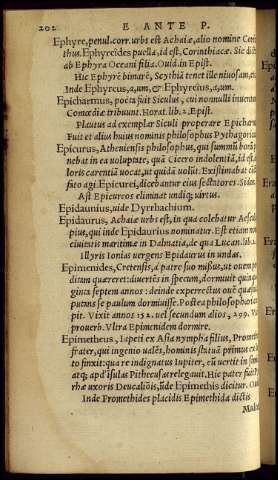 202 E ANTE P.
Ephyre, penul. corr. urbs est Achaiæ, alio nomine Corin
thus. Ephyreides puellæ, id est, Corinthiacæ. Sic dict
ab Ephyra Oceani filia. Ouid. in Epist.
Hic Ephyre bimare, Scythia tenet ille niuosam, &c.
Inde Ephyreus, a, um, & Ephyreius, a, um.
Epicharmus, poeta fuit Siculus, cui nonnulli inuentum
Comœdiæ tribunt. Horat. lib. 2. Epist.
Plautus ad exemplar Siculi properare Epicharm
Fuit et alius huius nominis philosophus Pythagoric
Epicurus, Atheniensis philosophus, qui summũ bonũ
nebat in ea uoluptate, quã Cicero indolentiã, id est,
loris carentiã uocat, ut quidã uolũt. Existimabat
fato agi. Epicurei, dicebantur eius sectatores. Sidon
Ast Epicuros eliminat undiq; uirtus.
Epidaunius, uide Dyrrhachium.
Epidaurus, Achaiæ urbs est, in qua colebatur Aescula
pius, qui inde Epidaurius nominatur. Est etiam no
ciuitatis maritimæ in Dalmatia, de qua Lucan. lib.
Illyris Ionias uergens Epidaurus in undas.
Epimenides, Cretensis, à patre suo missus, ut ouem
ditum quæreret: diuertes in specum, dormiuit qua
ginta septem annos: deinde experrectus ouẽ quæ
putans se paulum dormiuisse. Postea philosophatus
pit. Vixit annos 152. uel secundum alios, 299.
prouerb. Vltra Epimenidem dormire.
Epimetheus, Iapeti ex Asia nympha filius, Promet
frater, qui ingenio ualẽs, hominis statuã primus ex
to finxit: qua re indignatus Iupiter, eũ uertit in
atq; apd' isulas Pithecusas relegauit. Hic pater fuit
rhæ uxoris Deucaliõis, ũde Epimethis dicitur. Oui
Inde Promethides placidis Epimethida dictis